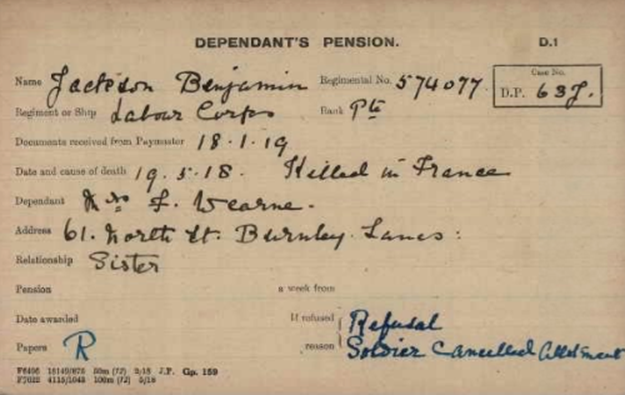 DEPENDANT'S PENSION. D.1
Name Jackson Benjamin Regimental No. 574077 Case No.
Regiment or Ship Labour Corps Rank Pte D.P. 63J.
Documents received from Paymaster 18.1.19
Date and cause of death 19.5.18. Killed in France
Dependant Mrs F. Wearne.
Address 61. North St. Burnley. Lancs:
Relationship Sister
Pension a week from
Date awarded If refused Refusal
Papers R reason Soldier Cancelled Allotment
F6496 50m (12) 2/18 J.P. Gp. 159
100m (12) 5/18